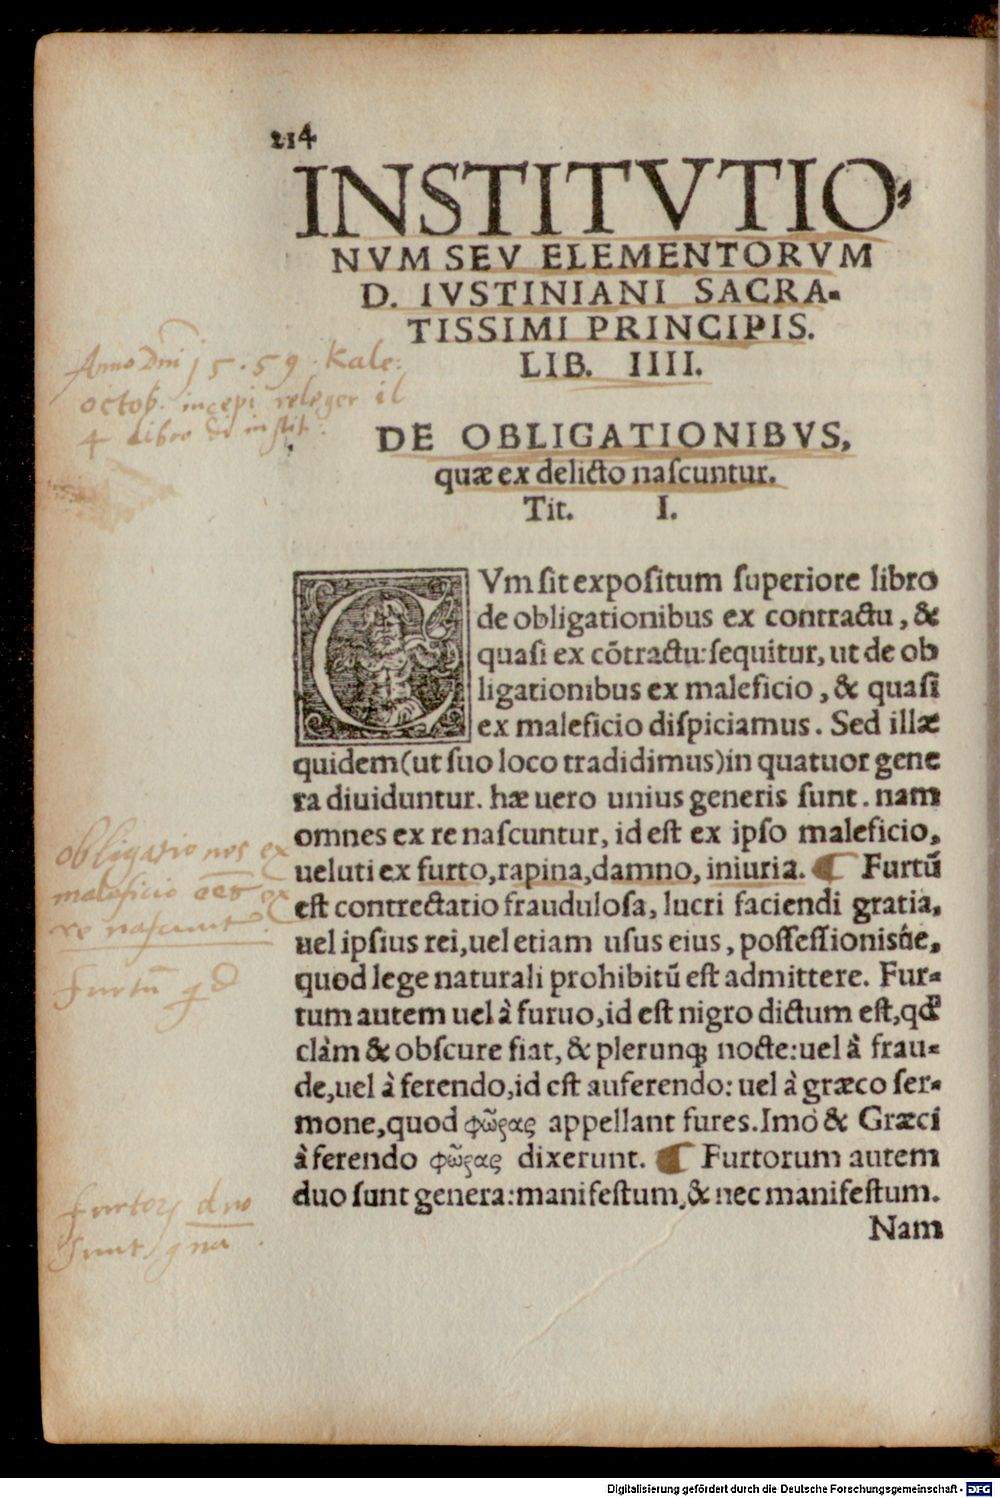 214
INSTITVTIO-
NVM SEV ELEMENTORVM
D. IVSTINIANI SACRA-
TISSIMI PRINCIPIS.
LIB. IIII.
Anno Dni 15.59. Kale:
octob. incepi releger il
4 libro di instit.
DE OBLIGATIONIBVS,
quæ ex delicto nascuntur.
Tit. I.
CVm sit expositum superiore libro
de obligationibus ex contractu, &
quasi ex cõtractu: sequitur, ut de ob
ligationibus ex maleficio, & quasi
ex maleficio dispiciamus. Sed illæ
quidem (ut suo loco tradidimus) in quatuor gene
ra diuiduntur. hæ uero unius generis sunt. nam
omnes ex re nascuntur, id est ex ipso maleficio,
ueluti ex furto, rapina, damno, iniuria. ¶ Furtũ
est contrectatio fraudulosa, lucri faciendi gratia,
uel ipsius rei, uel etiam usus eius, possessionisúe,
quod lege naturali prohibitũ est admittere. Fur-
tum autem uel à furuo, id est nigro dictum est, qd'
clàm & obscure fiat, & plerunq; nocte: uel à frau-
de, uel à ferendo, id est auferendo: uel à græco ser-
mone, quod φῶρας appellant fures. Imò & Græci
à ferendo φῶρας dixerunt. ¶ Furtorum autem
duo sunt genera: manifestum, & nec manifestum.
Nam
obligatio nes ex
maleficio oēs ex
re nascunt.
furtũ qd
furtorũ duo
sunt gña.
Digitalisierung gefördert durch die Deutsche Forschungsgemeinschaft - DFG